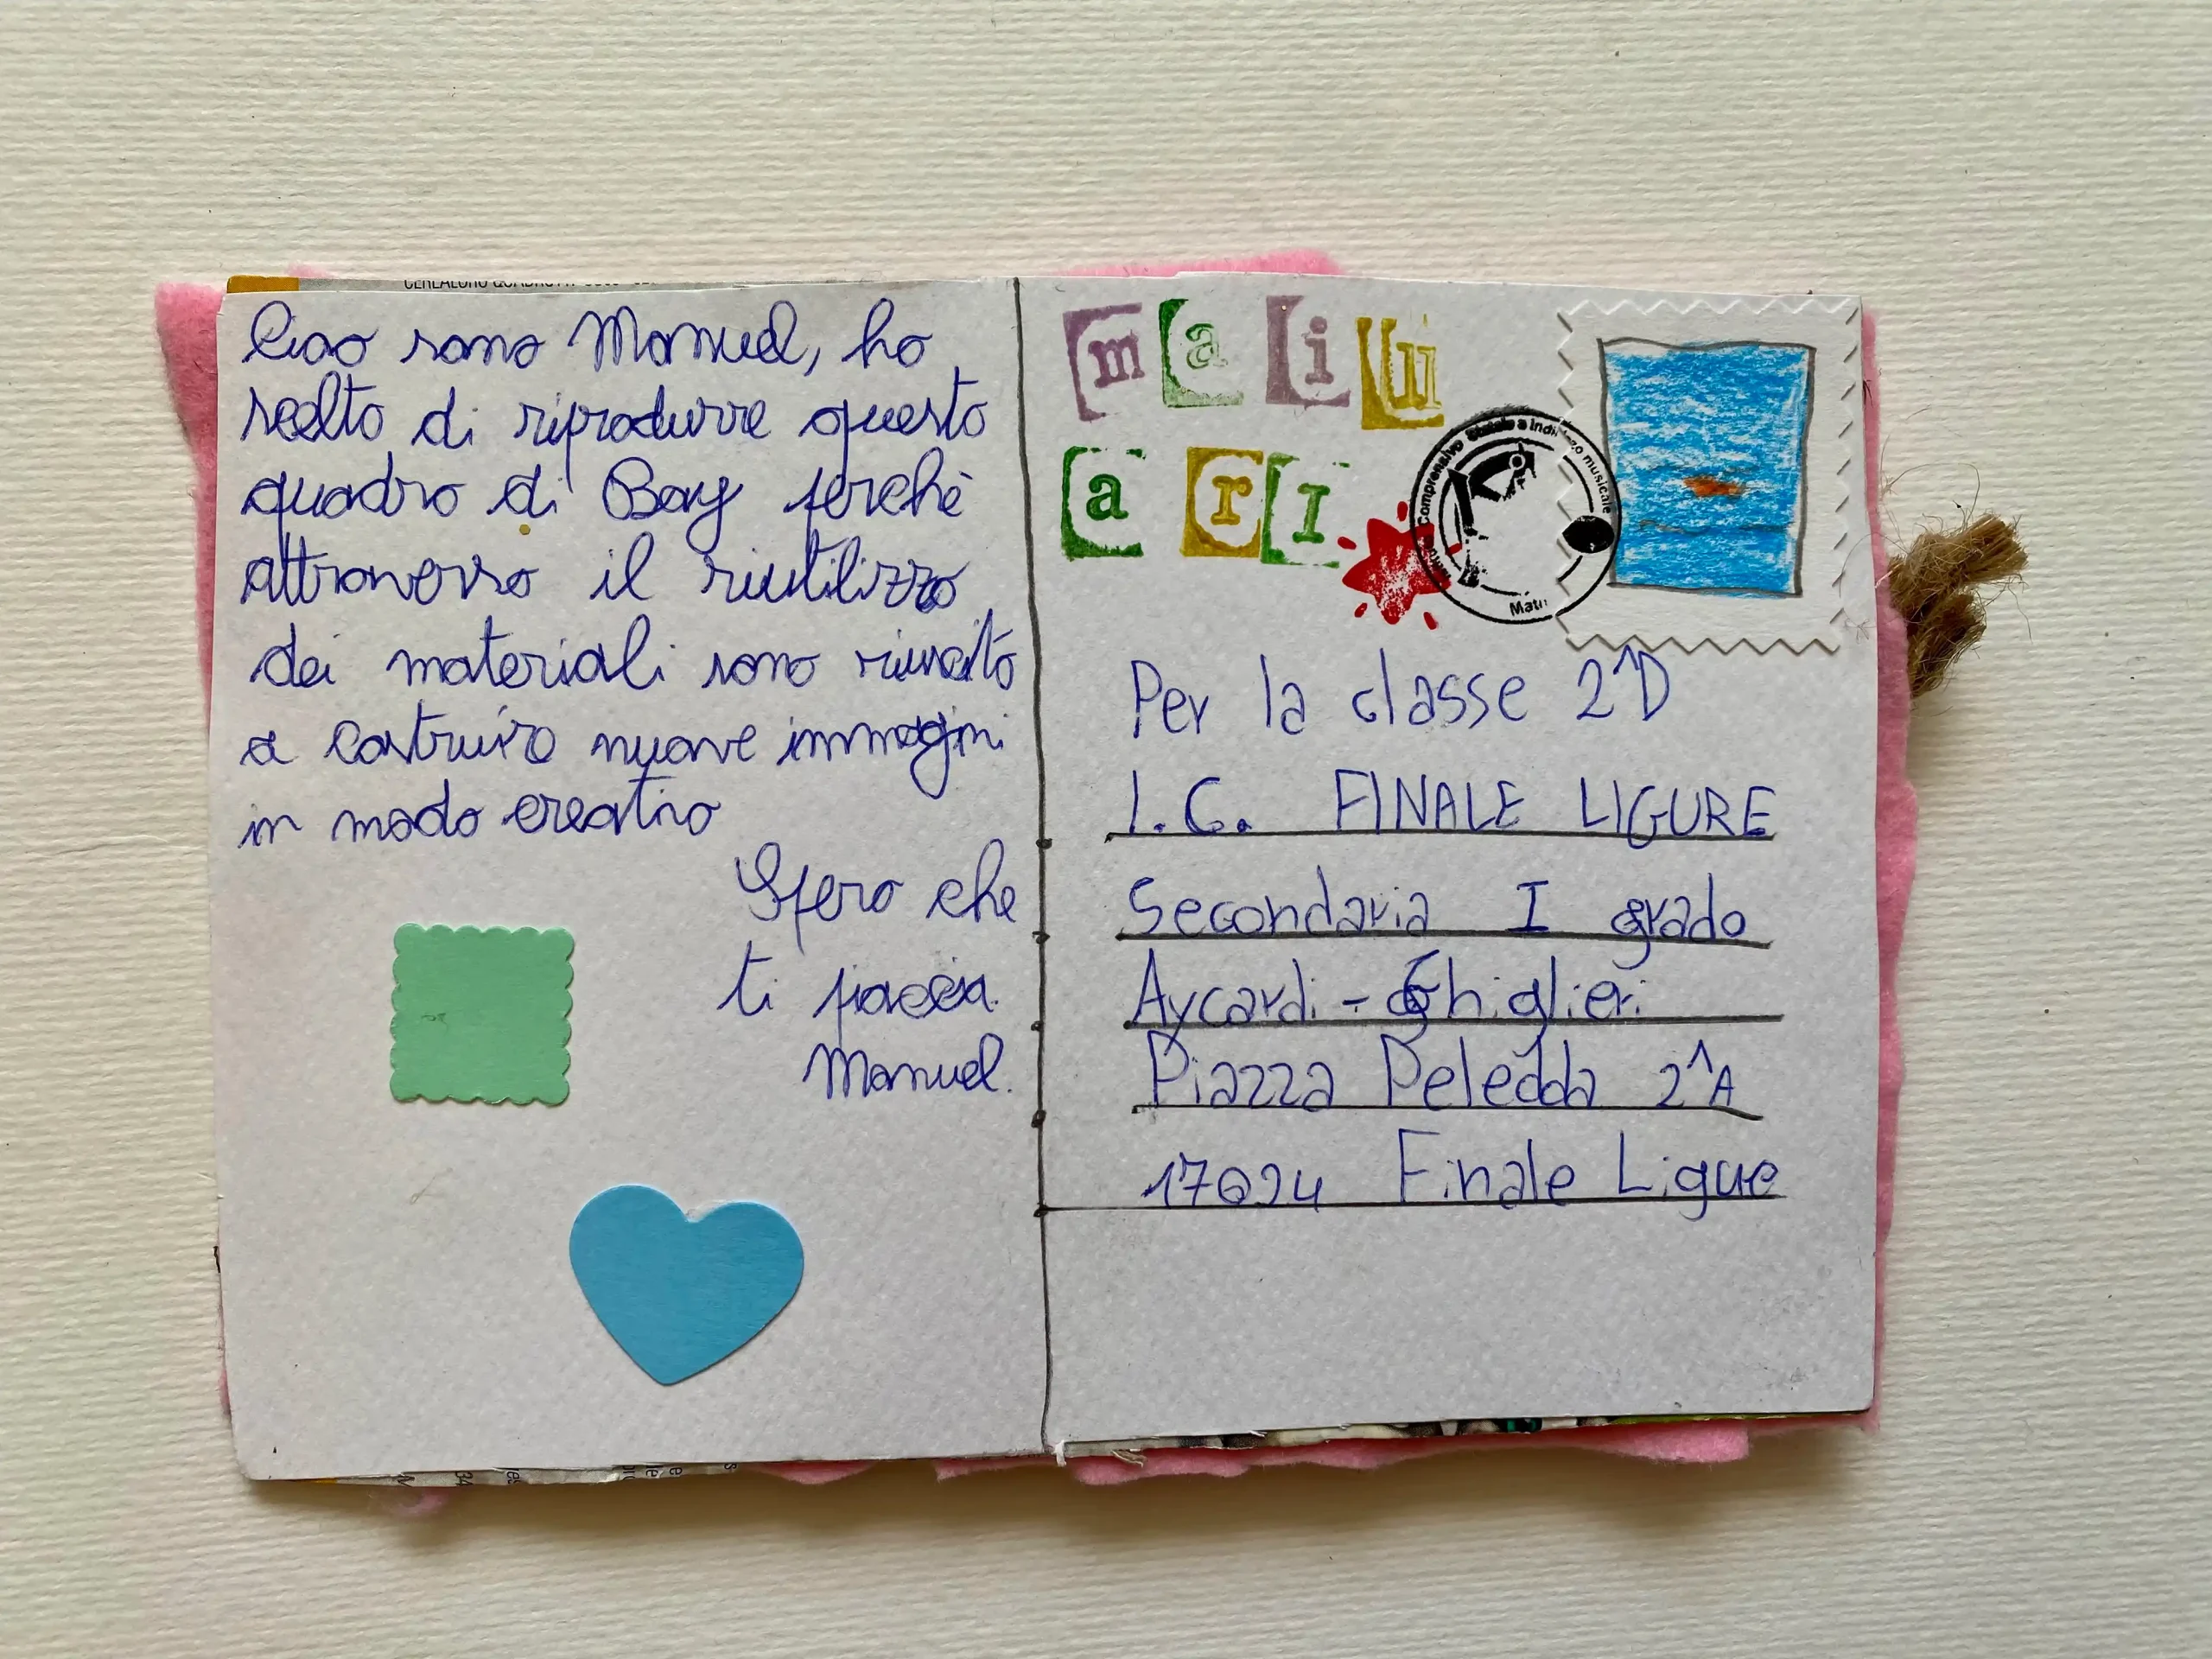 Ciao sono Manuel, ho
scelto di riprodurre questo
quadro di Bay perchè
attraverso il riutilizzo
dei materiali sono riuscito
a costruire nuove immagini
in modo creativo
Spero che
ti piaccia.
Manuel.
mail
art
Comprensivo Statale a indirizzo musicale
Per la classe 2^D
I.C. FINALE LIGURE
Secondaria I grado
Aycardi - Ghiglieri
Piazza Deledda 2^A
17024 Finale Ligue